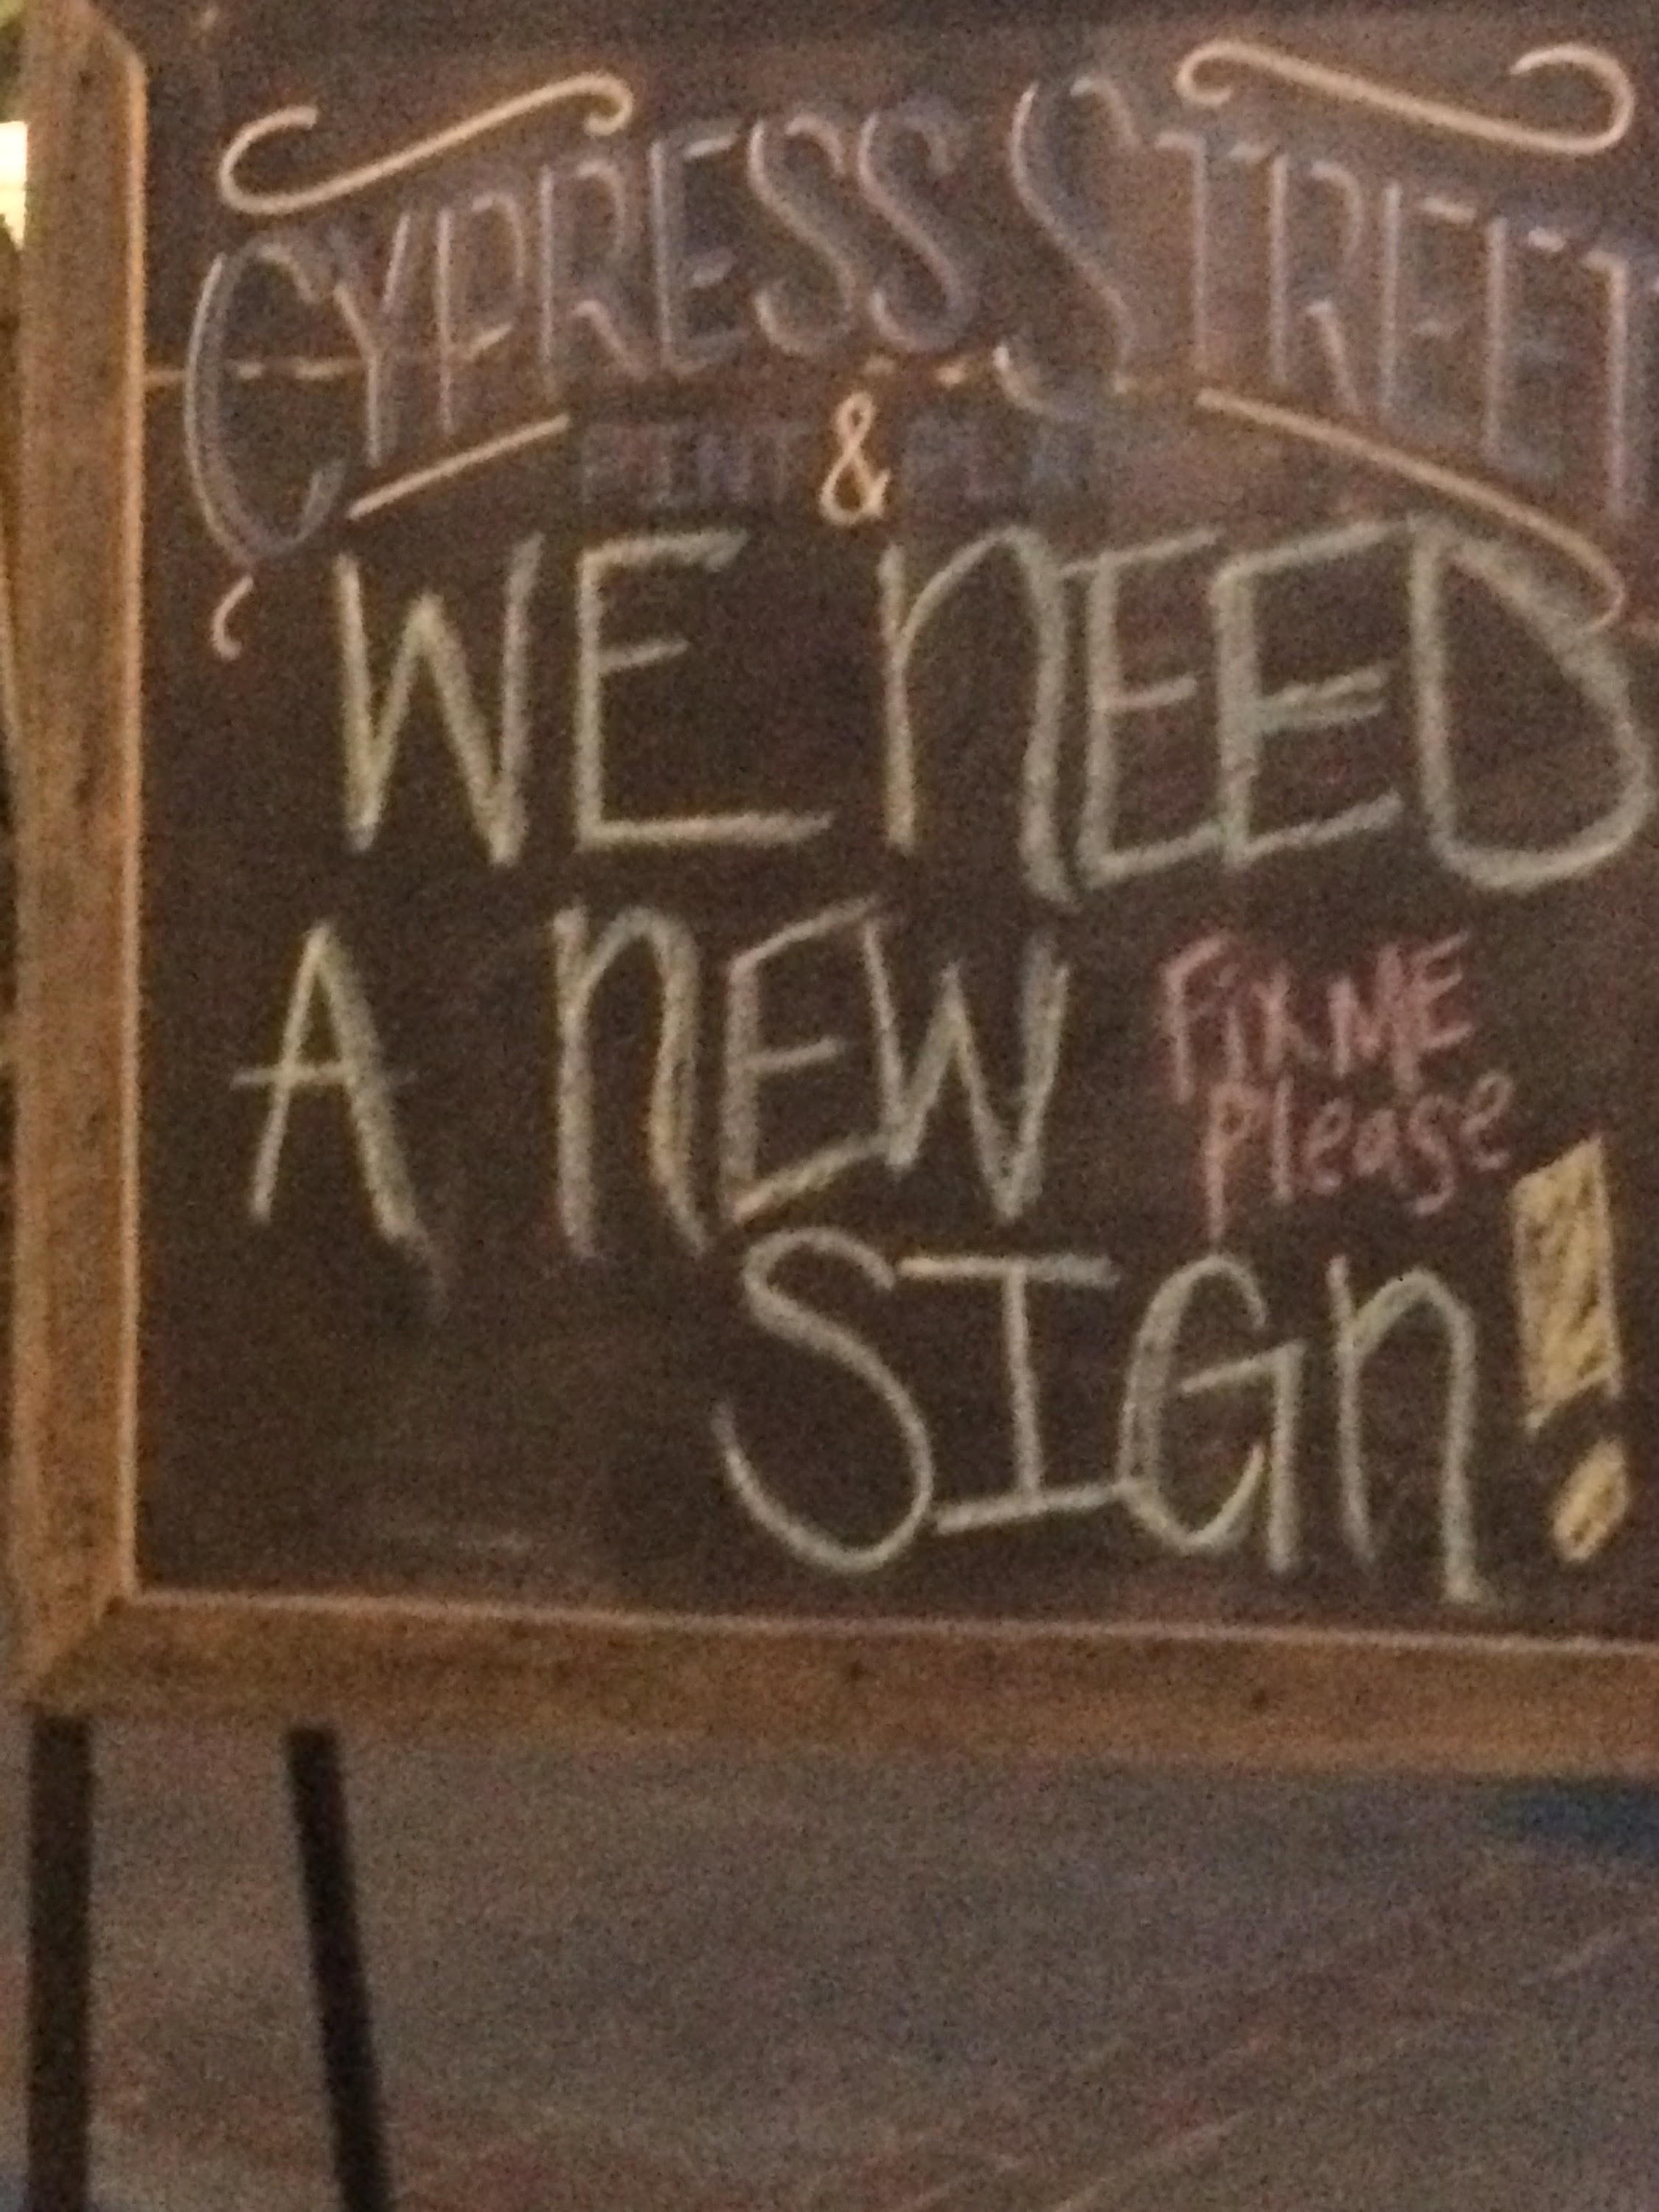 CYPRESS STREET
PINT & PLATE
WE NEED
A NEW
FIX ME
Please
SIGN!